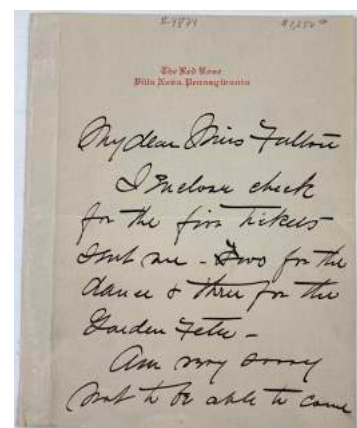 The Red Rose
Villa Nova, Pennsylvania
My dear Miss
I Enclose check
for the five tickets
sent me - Two for the
dance & three for the
Garden Fete -
Am very sorry
not to be able to come